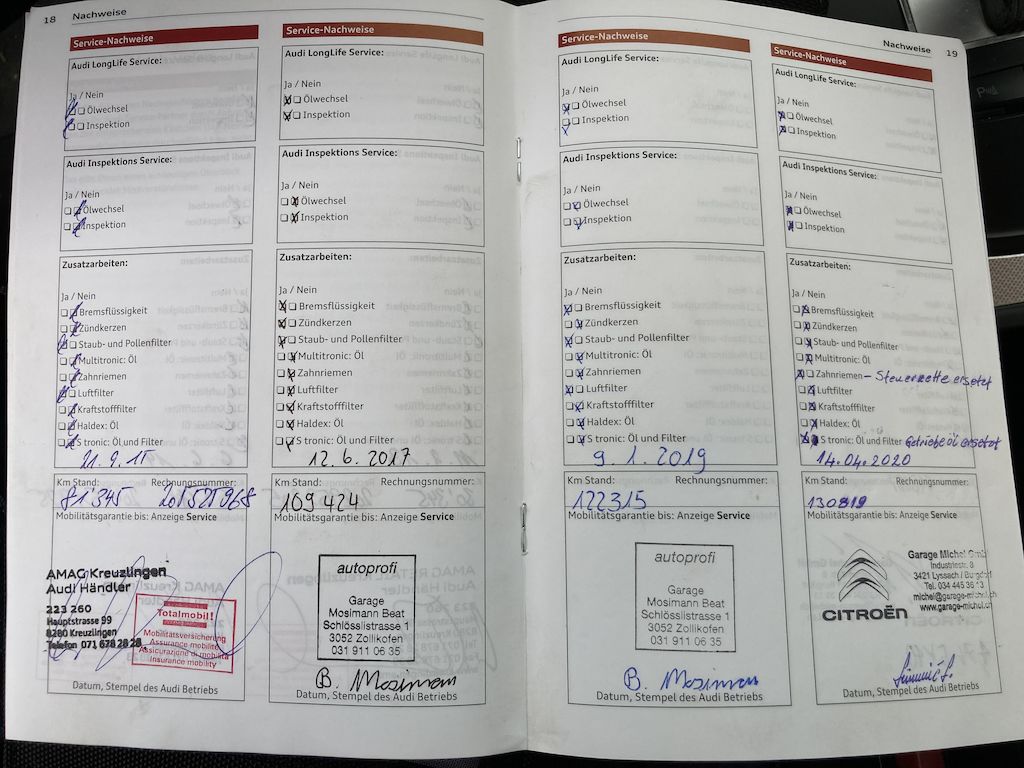 18 Nachweise
Service-Nachweise
Audi LongLife Service:
Ja / Nein
Ölwechsel
Inspektion
Audi Inspektions Service:
Ja / Nein
Ölwechsel
Inspektion
Zusatzarbeiten:
Ja / Nein
Bremsflüssigkeit
Zündkerzen
Staub- und Pollenfilter
Multitronic: Öl
Zahnriemen
Luftfilter
Kraftstofffilter
Haldex: Öl
S tronic: Öl und Filter
21.9.15
Km Stand: Rechnungsnummer:
81'345 201525968
Mobilitätsgarantie bis: Anzeige Service
AMAG Kreuzlingen
Audi Händler
223 260
Hauptstrasse 99
8280 Kreuzlingen
Telefon 071 678 28 28
Totalmobil!
Mobilitätsversicherung
Assurance mobilité
Assicurazione di mobilità
Insurance mobility
Datum, Stempel des Audi Betriebs
Service-Nachweise
Audi LongLife Service:
Ja / Nein
Ölwechsel
Inspektion
Audi Inspektions Service:
Ja / Nein
Ölwechsel
Inspektion
Zusatzarbeiten:
Ja / Nein
Bremsflüssigkeit
Zündkerzen
Staub- und Pollenfilter
Multitronic: Öl
Zahnriemen
Luftfilter
Kraftstofffilter
Haldex: Öl
S tronic: Öl und Filter
12.6.2017
Km Stand: Rechnungsnummer:
109424
Mobilitätsgarantie bis: Anzeige Service
autoprofi
Garage
Mosimann Beat
Schlösslistrasse 1
3052 Zollikofen
031 911 06 35
B. Mosimann
Datum, Stempel des Audi Betriebs
Nachweise 19
Service-Nachweise
Audi LongLife Service:
Ja / Nein
Ölwechsel
Inspektion
Audi Inspektions Service:
Ja / Nein
Ölwechsel
Inspektion
Zusatzarbeiten:
Ja / Nein
Bremsflüssigkeit
Zündkerzen
Staub- und Pollenfilter
Multitronic: Öl
Zahnriemen
Luftfilter
Kraftstofffilter
Haldex: Öl
S tronic: Öl und Filter
9.1.2019
Km Stand: Rechnungsnummer:
122315
Mobilitätsgarantie bis: Anzeige Service
autoprofi
Garage
Mosimann Beat
Schlösslistrasse 1
3052 Zollikofen
031 911 06 35
B. Mosimann
Datum, Stempel des Audi Betriebs
Service-Nachweise
Audi LongLife Service:
Ja / Nein
Ölwechsel
Inspektion
Audi Inspektions Service:
Ja / Nein
Ölwechsel
Inspektion
Zusatzarbeiten:
Ja / Nein
Bremsflüssigkeit
Zündkerzen
Staub- und Pollenfilter
Multitronic: Öl
Zahnriemen – Steuerkette ersetzt
Luftfilter
Kraftstofffilter
Haldex: Öl
S tronic: Öl und Filter Getriebe Öl ersetzt
14.04.2020
Km Stand: Rechnungsnummer:
130819
Mobilitätsgarantie bis: Anzeige Service
CITROËN
Garage Michel GmbH
Industriestr. 8
3421 Lyssach / Burgdorf
Tel. 034 445 36 13
michel@garage-michel.ch
www.garage-michel.ch
Datum, Stempel des Audi Betriebs